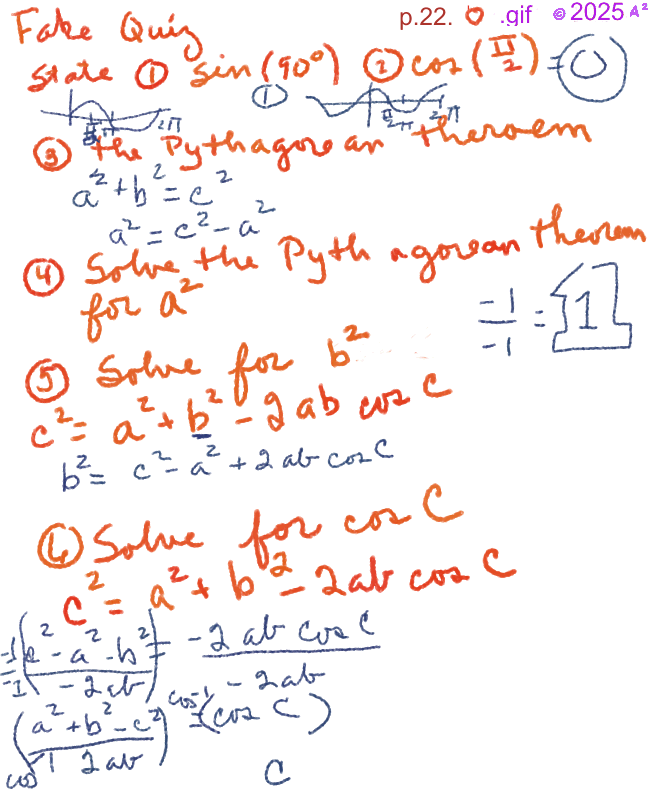 Fake Quiz
p.22. .gif © 2025 A²
state ① sin(90°) ② cos(π/2) = 0
①
π/2 π 2π
π/2 π 2π
③ the Pythagorean theroem
a² + b² = c²
a² = c² - a²
④ Solve the Pythagorean theorem
for a²
-1/-1 = 1
⑤ Solve for b²
c² = a² + b² - 2ab cos C
b² = c² - a² + 2ab cos C
⑥ Solve for cos C
c² = a² + b² - 2ab cos C
-1/-1 (c² - a² - b² / -2ab) = -2ab cos C / -2ab
cos⁻¹(a² + b² - c² / 2ab) = cos⁻¹(cos C)
C